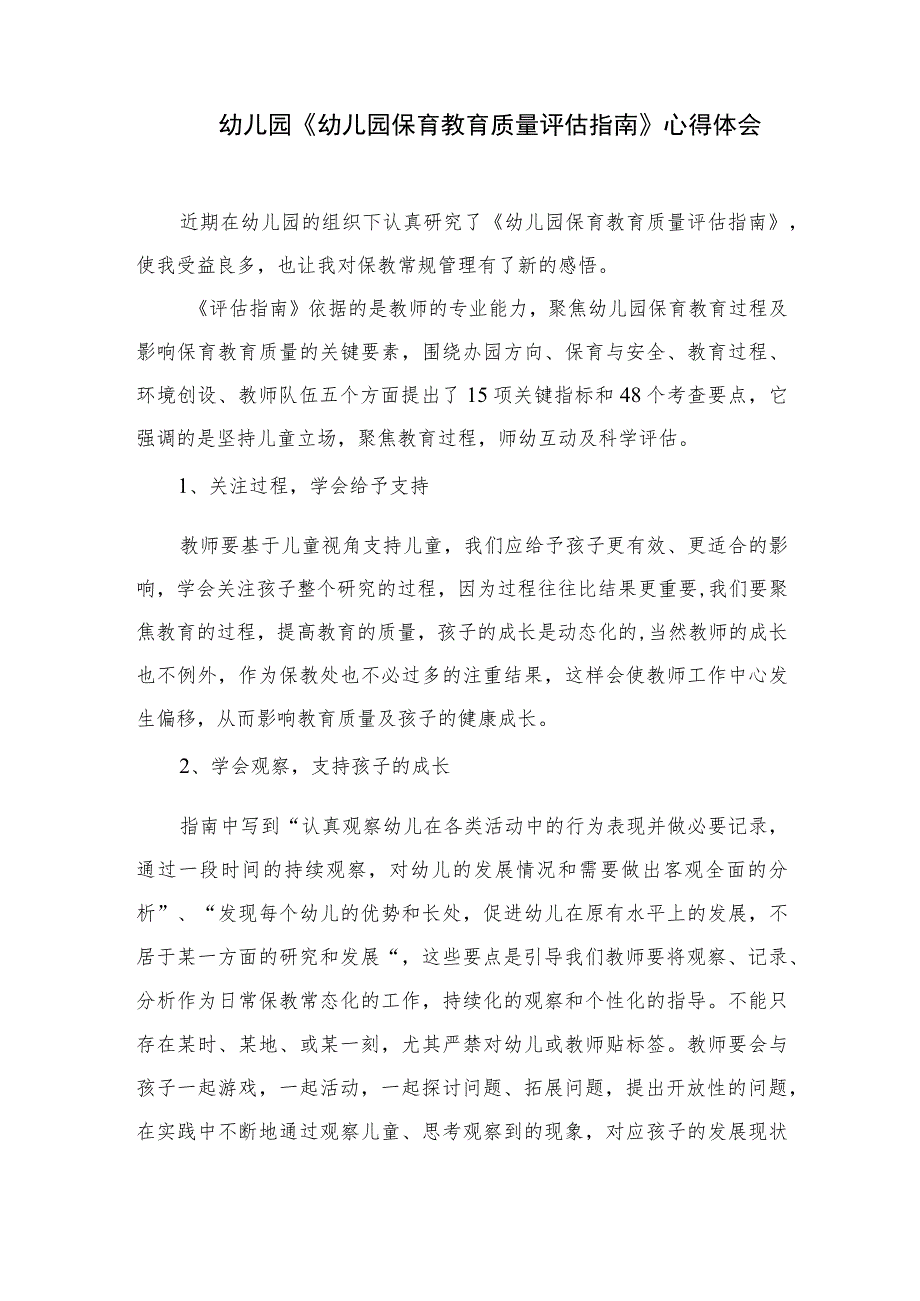 幼儿园《幼儿园保育教育质量评估指南》心得体会
近期在幼儿园的组织下认真研究了《幼儿园保育教育质量评估指南》，
使我受益良多，也让我对保教常规管理有了新的感悟。
《评估指南》依据的是教师的专业能力，聚焦幼儿园保育教育过程及
影响保育教育质量的关键要素，围绕办园方向、保育与安全、教育过程、
环境创设、教师队伍五个方面提出了 15 项关键指标和 48 个考查要点，它
强调的是坚持儿童立场，聚焦教育过程，师幼互动及科学评估。
1、关注过程，学会给予支持
教师要基于儿童视角支持儿童，我们应给予孩子更有效、更适合的影
响，学会关注孩子整个研究的过程，因为过程往往比结果更重要,我们要聚
焦教育的过程，提高教育的质量，孩子的成长是动态化的,当然教师的成长
也不例外，作为保教处也不必过多的注重结果，这样会使教师工作中心发
生偏移，从而影响教育质量及孩子的健康成长。
2、学会观察，支持孩子的成长
指南中写到“认真观察幼儿在各类活动中的行为表现并做必要记录，
通过一段时间的持续观察，对幼儿的发展情况和需要做出客观全面的分
析”、“发现每个幼儿的优势和长处，促进幼儿在原有水平上的发展，不
居于某一方面的研究和发展“，这些要点是引导我们教师要将观察、记录、
分析作为日常保教常态化的工作，持续化的观察和个性化的指导。不能只
存在某时、某地、或某一刻，尤其严禁对幼儿或教师贴标签。教师要会与
孩子一起游戏，一起活动，一起探讨问题、拓展问题，提出开放性的问题，
在实践中不断地通过观察儿童、思考观察到的现象，对应孩子的发展现状